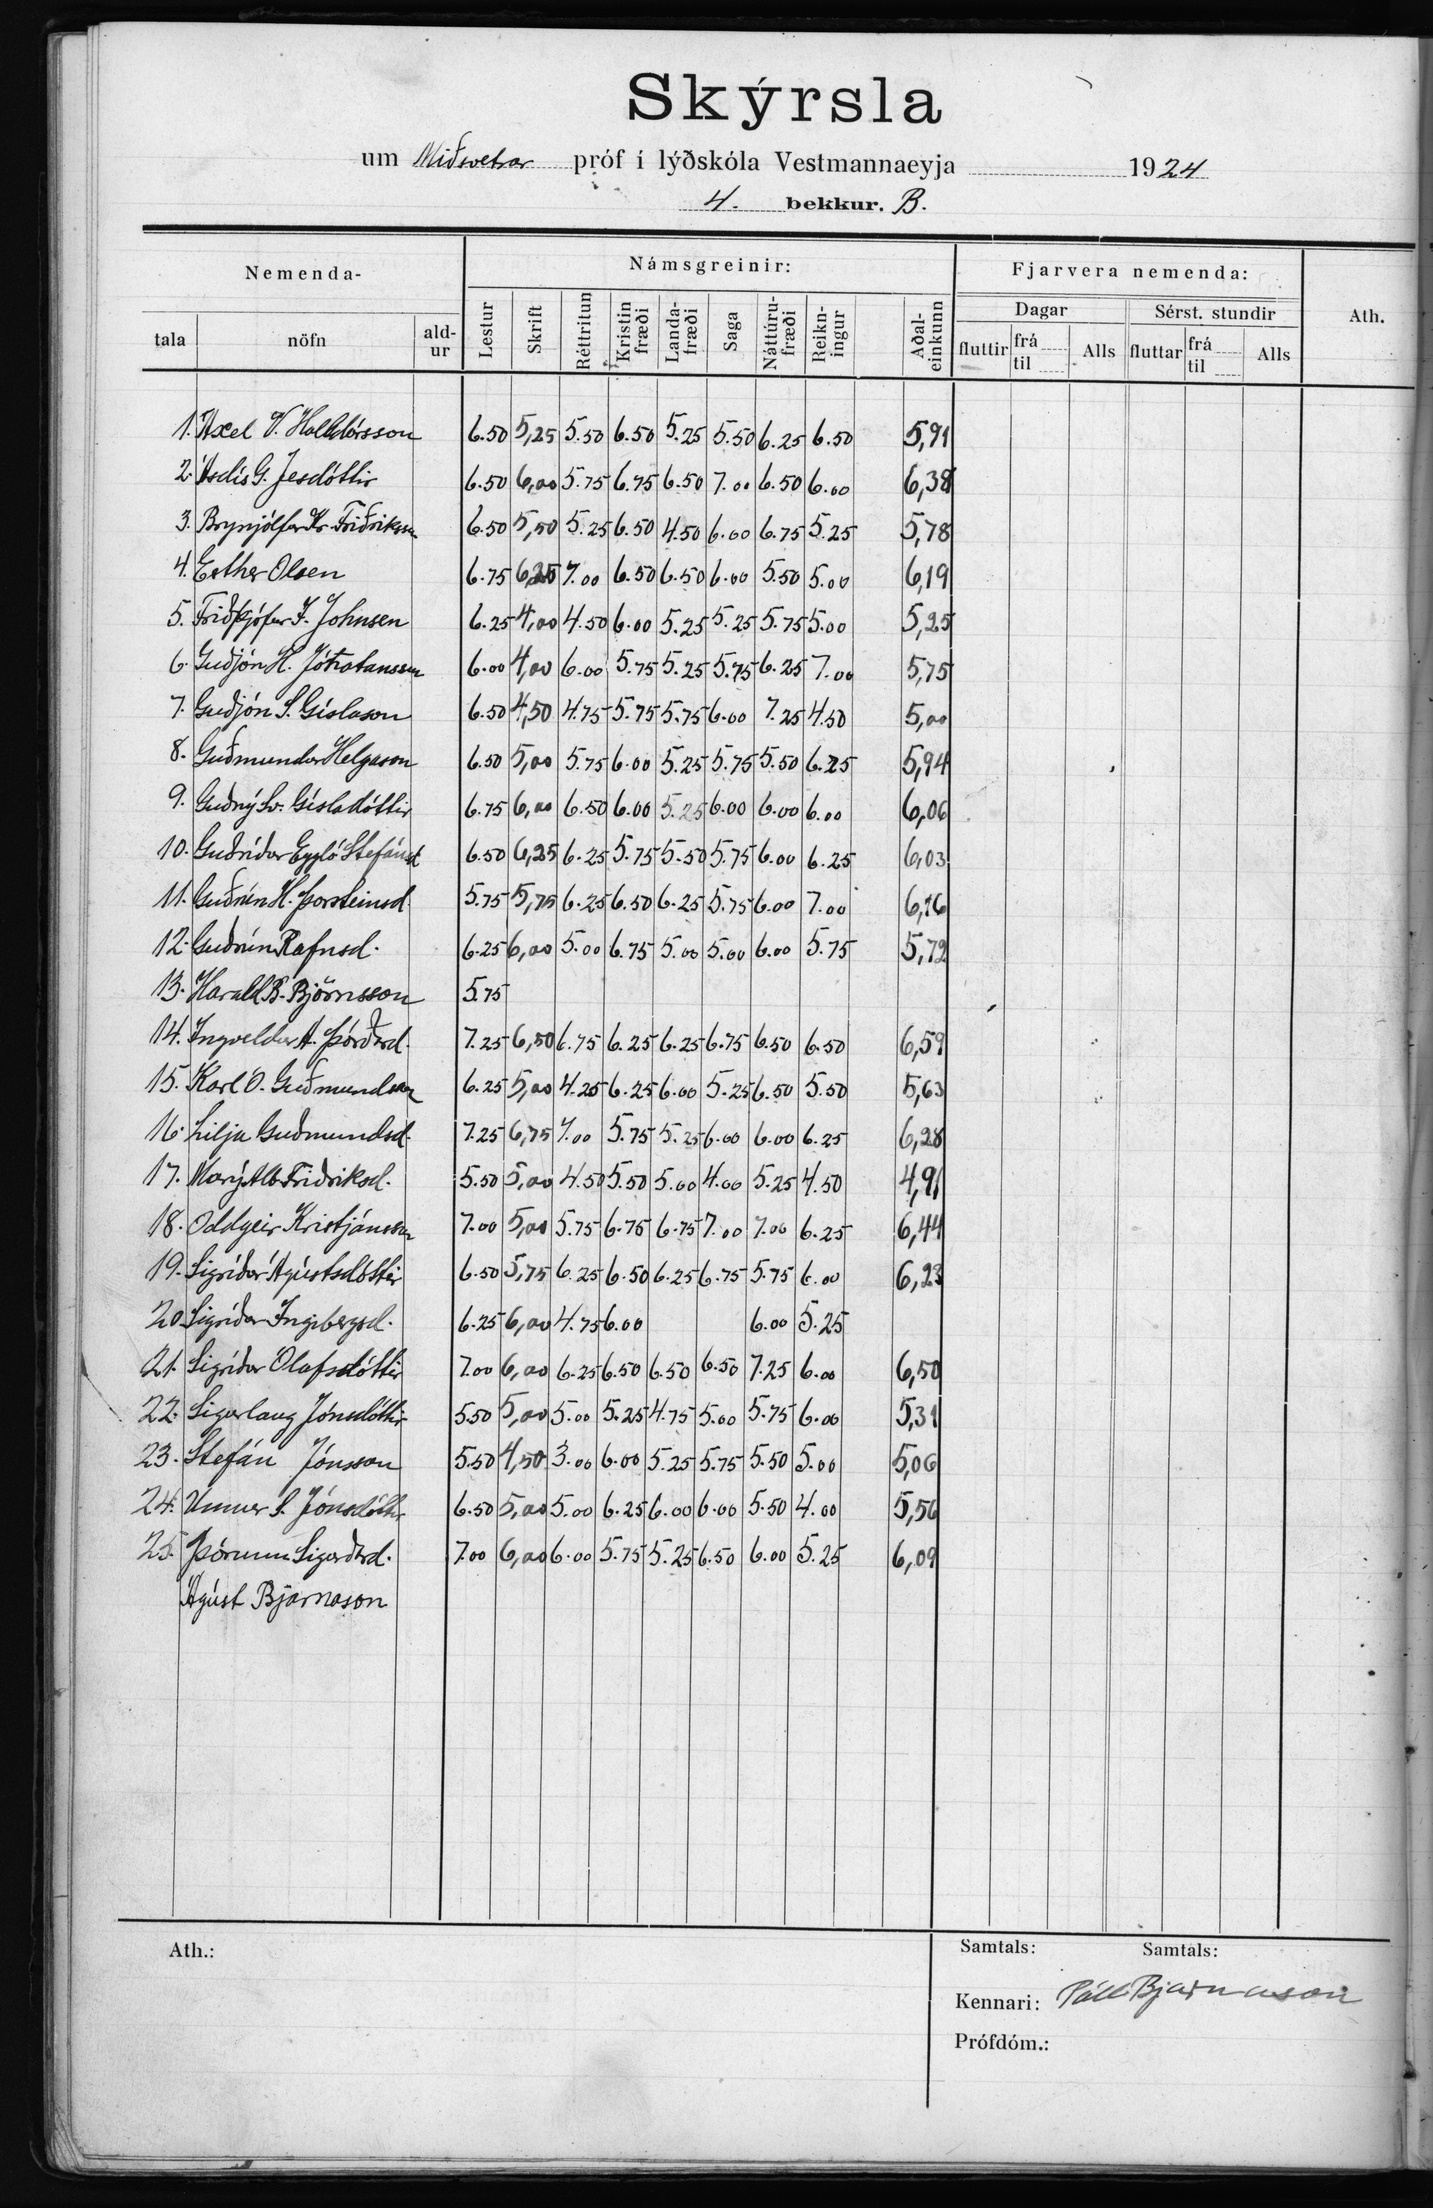 Skýrsla
um Miðsvetrar próf í lýðskóla Vestmannaeyja 1924
4. bekkur. B.
Nemenda- Námsgreinir: Fjarvera nemenda: Ath.
tala nöfn ald-ur Lestur Skrift Réttritun Kristin fræði Landa-fræði Saga Náttúru-fræði Reikn-ingur Aðal-einkunn Dagar Sérst. stundir
fluttir frá til Alls fluttar frá til Alls
1. Axel V. Halldórsson 6.50 5,25 5.50 6.50 5.25 5.50 6.25 6.50 5,91
2. Ásdís G. Jesdóttir 6.50 6,00 5.75 6.75 6.50 7.00 6.50 6.00 6,38
3. Brynjólfur Kr. Friðriksson 6.50 5,50 5.25 6.50 4.50 6.00 6.75 5.25 5,78
4. Esther Olsen 6.75 6,25 7.00 6.50 6.50 6.00 5.50 5.00 6,19
5. Friðþjófur J. Johnsen 6.25 4,00 4.50 6.00 5.25 5.25 5.75 5.00 5,25
6. Guðjón H. Jónatansson 6.00 4,00 6.00 5.75 5.25 5.75 6.25 7.00 5,75
7. Guðjón S. Gíslason 6.50 4,50 4.75 5.75 5.75 6.00 7.25 4.50 5,00
8. Guðmundur Helgason 6.50 5,00 5.75 6.00 5.25 5.75 5.50 6.25 5,94
9. Guðný Sv. Gísladóttir 6.75 6,00 6.50 6.00 5.25 6.00 6.00 6.00 6,06
10. Guðríður Eygló Stefánsd. 6.50 6,25 6.25 5.75 5.50 5.75 6.00 6.25 6,03
11. Guðrún H. Þorsteinsd. 5.75 5,75 6.25 6.50 6.25 5.75 6.00 7.00 6,16
12. Guðrún Rafnsd. 6.25 6,00 5.00 6.75 5.00 5.00 6.00 5.75 5,72
13. Harald B. Björnsson 5.75
14. Ingveldur A. Þórðard. 7.25 6,50 6.75 6.25 6.25 6.75 6.50 6.50 6,59
15. Karl Ó. Guðmundsson 6.25 5,00 4.25 6.25 6.00 5.25 6.50 5.50 5,63
16. Lilja Guðmundsd. 7.25 6,75 7.00 5.75 5.25 6.00 6.00 6.25 6,28
17. Marý Alb. Friðriksd. 5.50 5,00 4.50 5.50 5.00 4.00 5.25 4.50 4,91
18. Oddgeir Kristjánsson 7.00 5,00 5.75 6.75 6.75 7.00 7.00 6.25 6,44
19. Sigríður Ágústsdóttir 6.50 5,75 6.25 6.50 6.25 6.75 5.75 6.00 6,23
20. Sigríður Ingibergsd. 6.25 6,00 4.75 6.00 6.00 5.25
21. Sigríður Ólafsdóttir 7.00 6,00 6.25 6.50 6.50 6.50 7.25 6.00 6,50
22. Sigurlaug Jónsdóttir 5.50 5,00 5.00 5.25 4.75 5.00 5.75 6.00 5,31
23. Stefán Jónsson 5.50 4,50 3.00 6.00 5.25 5.75 5.50 5.00 5,06
24. Unnur S. Jónsdóttir 6.50 5,00 5.00 6.25 6.00 6.00 5.50 4.00 5,56
25. Þórunn Sigurðard. 7.00 6,00 6.00 5.75 5.25 6.50 6.00 5.25 6,09
Ágúst Bjarnason
Ath.: Samtals: Samtals:
Kennari: Páll Bjarnason
Prófdóm.: